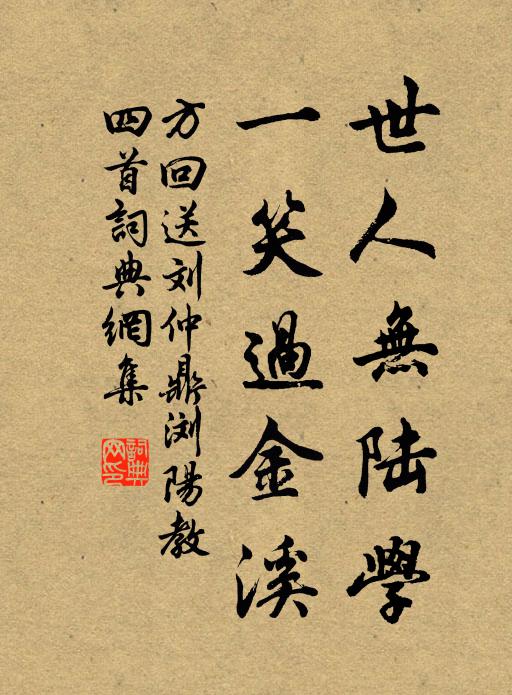 世人無陆學
一笑過金溪
方回送刘仲鼎浏陽教
四首詞典網集
詞典
网印